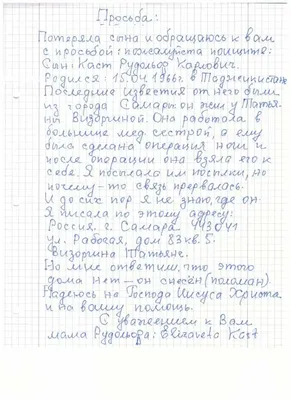 Просьба:
Потеряла сына и обращаюсь к вам
с просьбой: пожалуйста поищите:
Сын: Каст Рудольф Карлович.
Родился: 15.04.1966г. в Таджикистане
Последние известия от него были
из города Самары он жил у Татья-
ны Визоргиной. Она работала в
больнице мед.сестрой, а ему
была сделана операция ноги и
после операции она взяла его к
себе. Я посылала им посылки, но
почему-то связь прервалась.
И до сих пор я не знаю, где он.
Я писала по этому адресу:
Россия. г. Самара 443041
ул. Рабочая, дом 83 кв. 5.
Визоргина Татьяне.
Но мне ответили, что этого
дома нет – он снесён (поломан).
Надеюсь на Господа Иисуса Христа
и на вашу помощь.
С уважением к Вам
мама Рудольфа: Elizaveta Kast